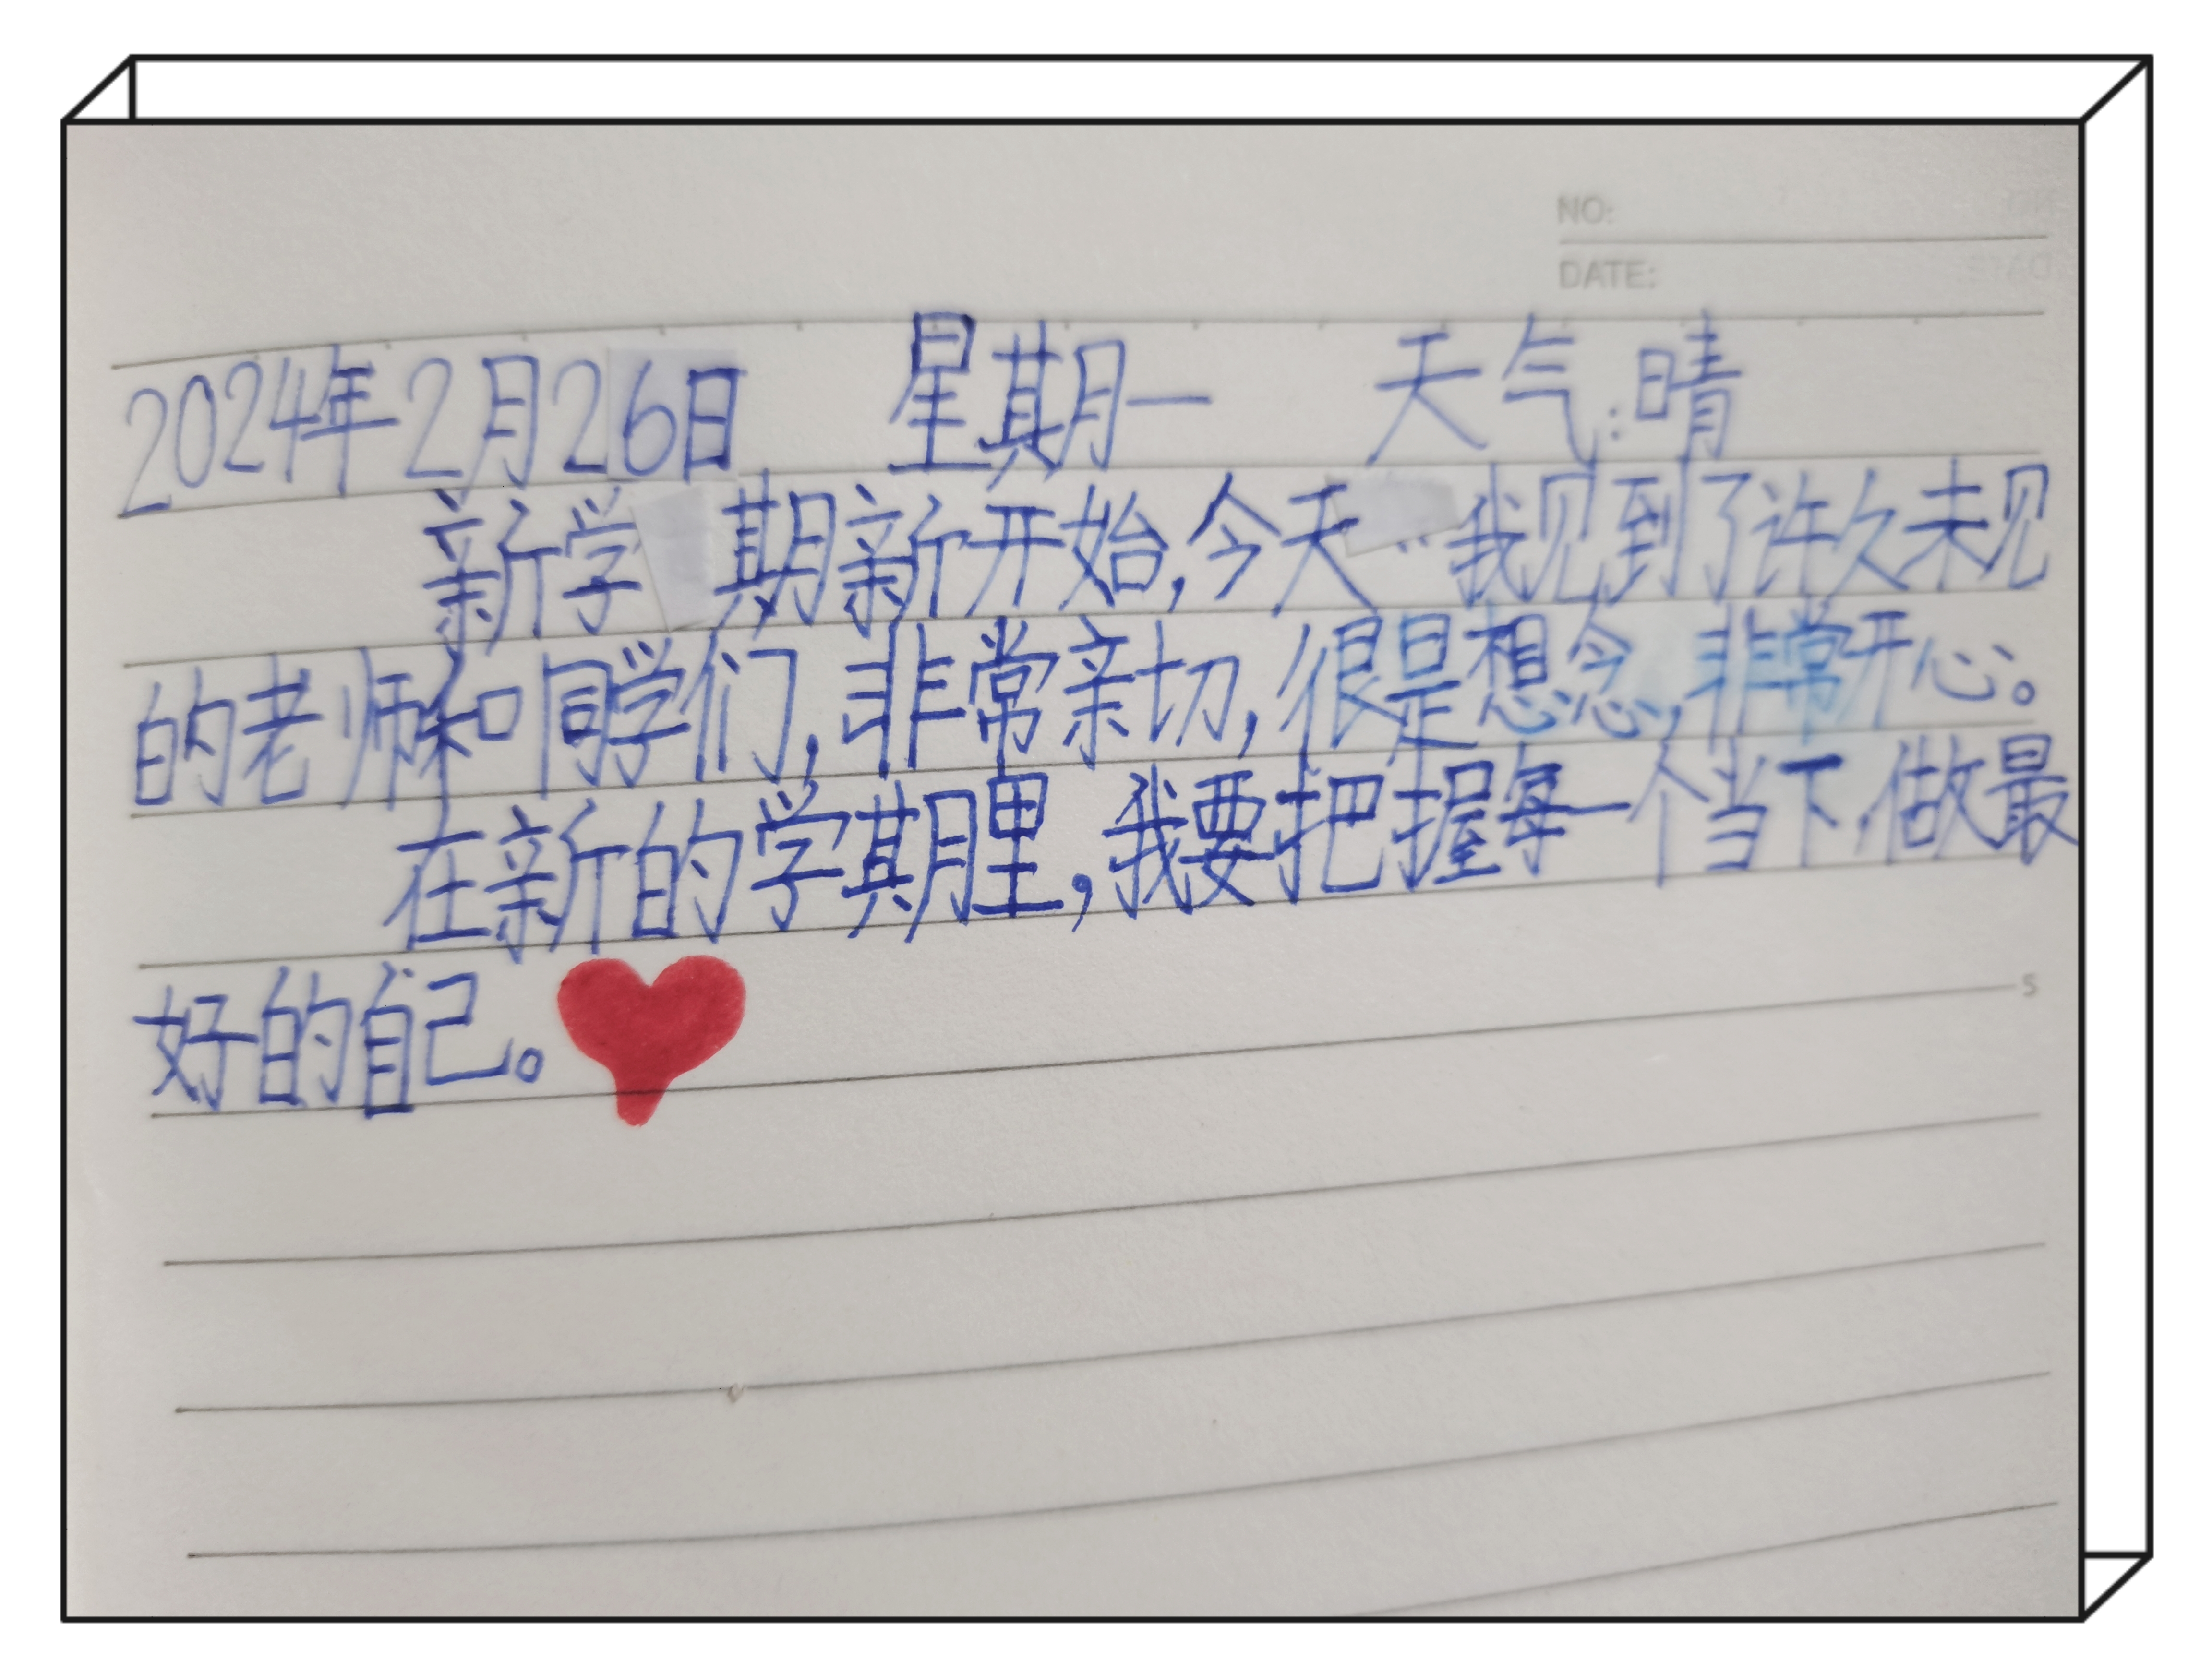 NO:
DATE:
2024年2月26日 星期一 天气:晴
新学期新开始,今天我见到了许久未见
的老师和同学们,非常亲切,很是想念,非常开心。
在新的学期里,我要把握每一个当下,做最
好的自己。
5